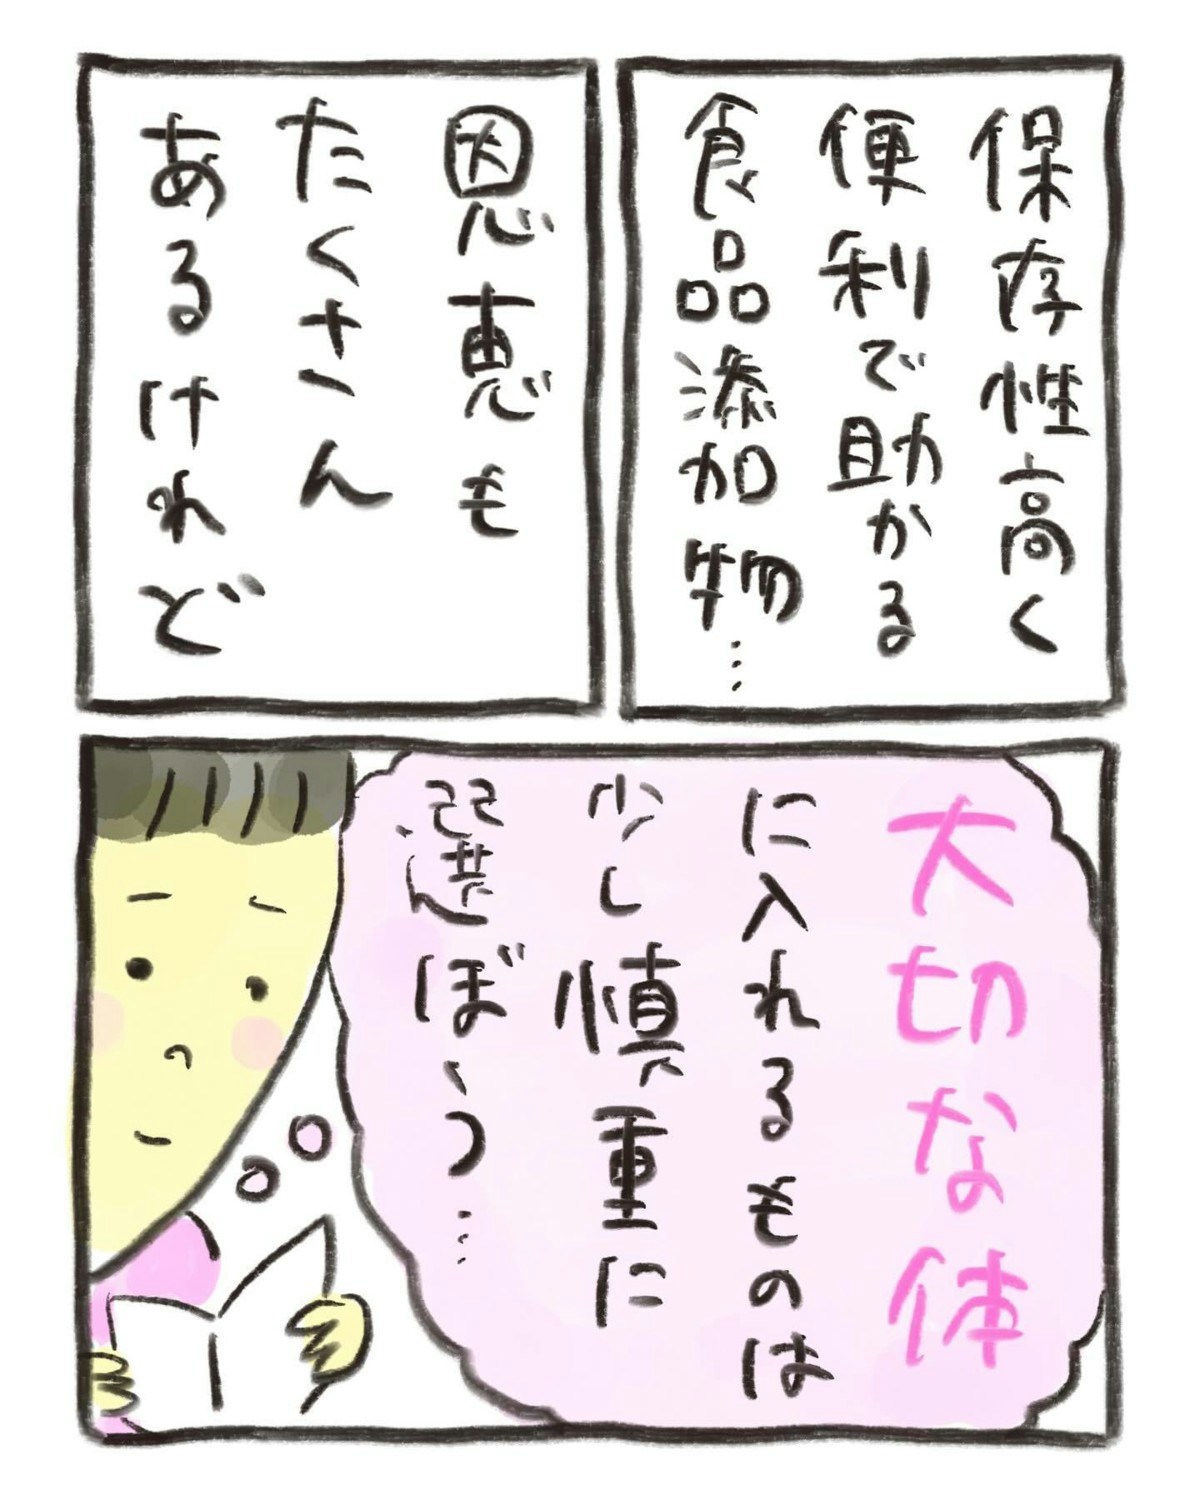 保存性高く
便利で助かる
食品添加物…
恩恵も
たくさん
あるけれど
大切な体
に入れるものは
少し慎重に
選ぼう…